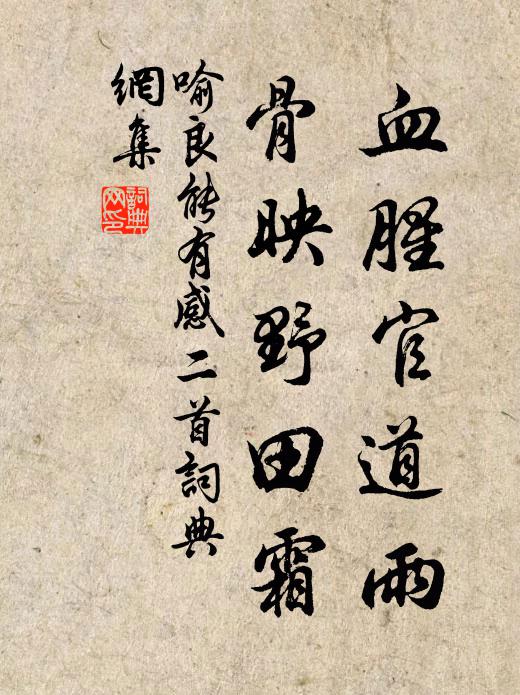 血腥官道雨
骨映野田霜
喻良能有感二首詞典
網集
詞典
网印